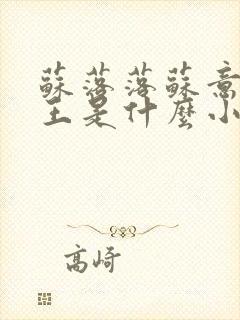 蘇落落蘇意
主是什麼小
高崎